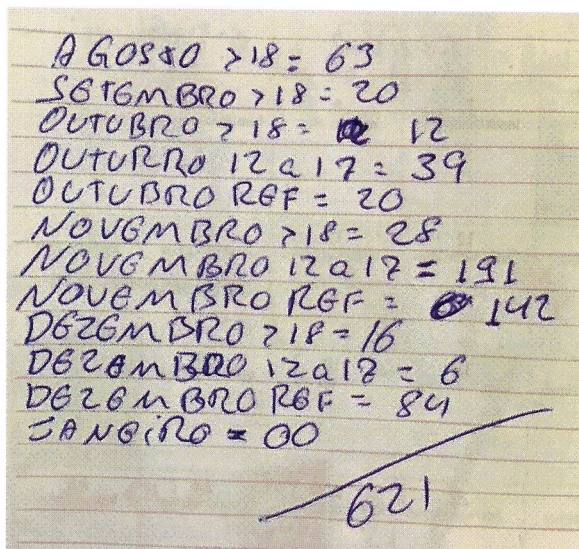 AGOSTO >18 = 63
SETEMBRO >18 = 20
OUTUBRO >18 = 12
OUTURRO 12 a 17 = 39
OUTUBRO REF = 20
NOVEMBRO >18 = 28
NOVEMBRO 12 a 17 = 191
NOVEMBRO REF = 142
DEZEMBRO >18 = 16
DEZEMBRO 12 a 17 = 6
DEZEMBRO REF = 84
JANEIRO = 00
621